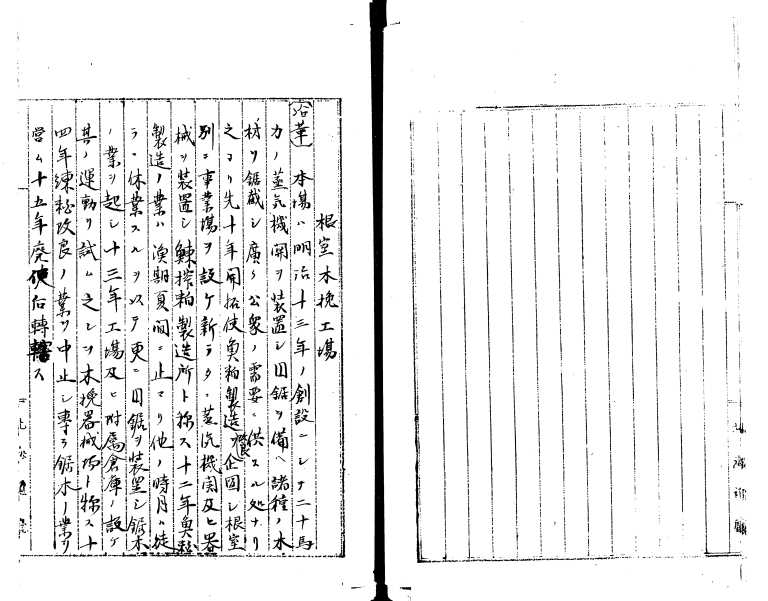 根室木挽工場
沿革 本場ハ明治十三年ノ創設ニシテ二十馬
力ノ蒸気機関ヲ装置シ旧鋸ヲ備ヘ諸種ノ木
材ヲ鋸截シ廣ク公衆ノ需要ニ供スル処ナリ
之ヨリ先十年開拓使魚粕製造改良ヲ企図シ根室
別ニ事業場ヲ設ケ新ラタニ蒸汽機関及ヒ器
械ヲ装置シ鰊搾粕製造所ト称ス十二年魚粕
製造ノ業ハ漁期夏間ニ止マリ他ノ時月ハ徒
ラニ休業スルヲ以テ更ニ旧鋸ヲ装置シ鋸木
ノ業ヲ起シ十三年工場及ヒ附属倉庫ヲ設ケ
其ノ運動ヲ試ム之レヲ木挽器械場ト称ス十
四年練粕改良ノ業ヲ中止シ専ラ鋸木ノ業ヲ
営ム十五年廃使后轉轄ス